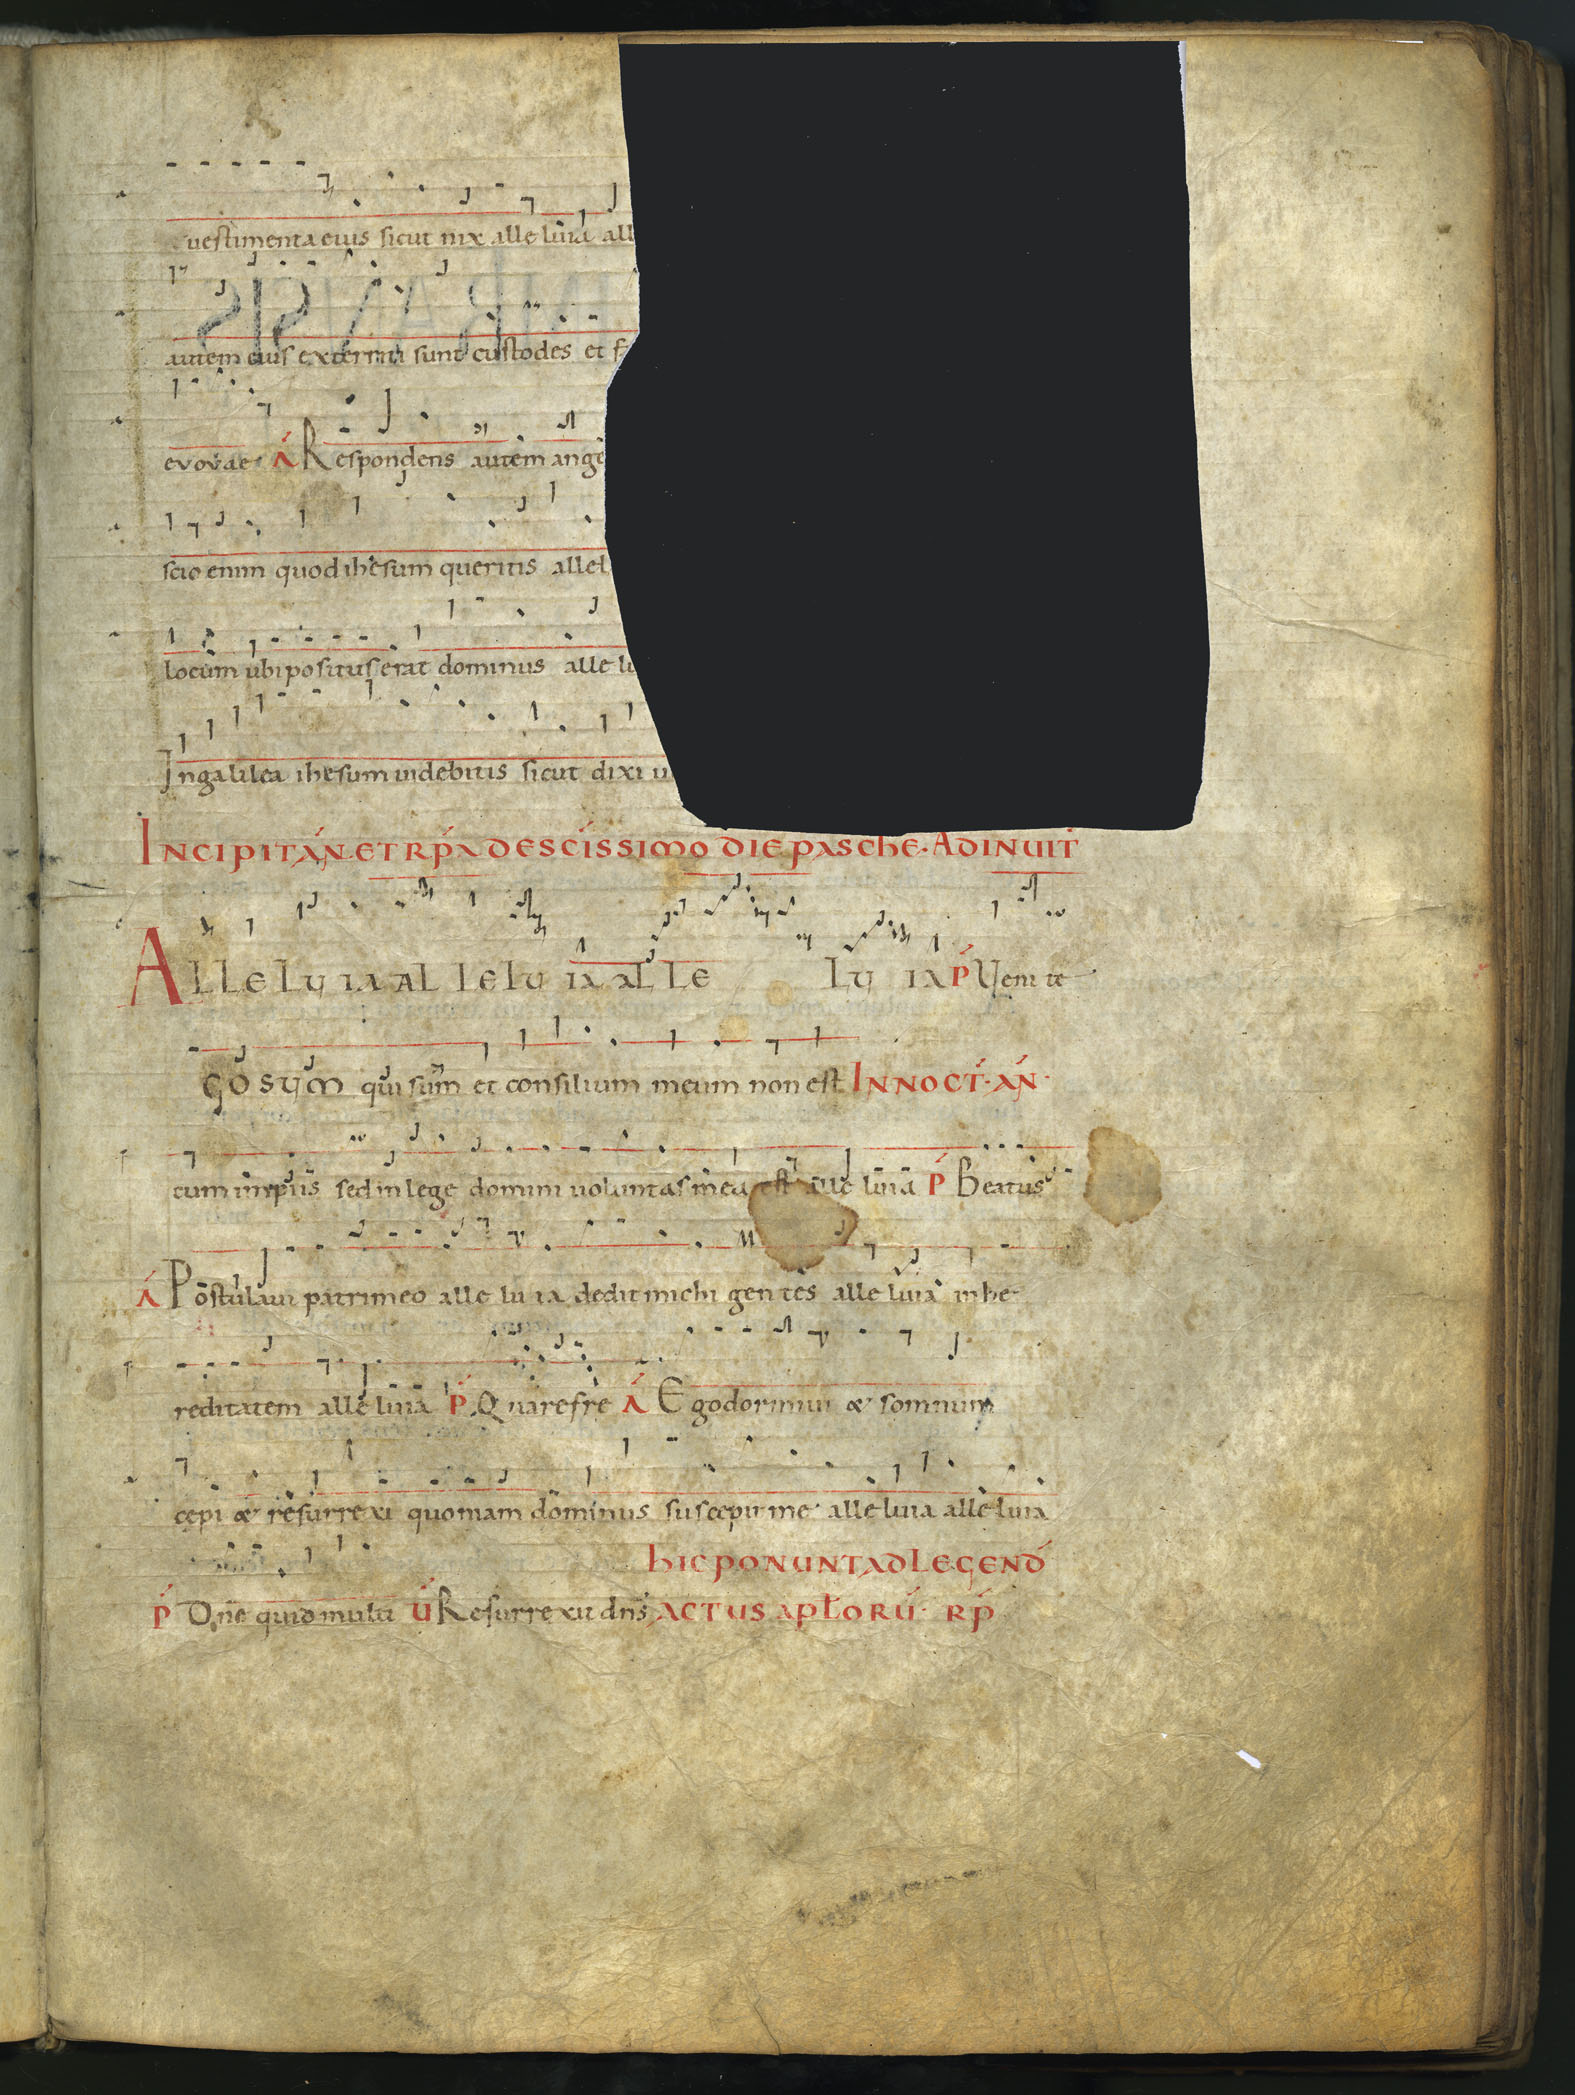 uestimenta eius sicut nix alleluia all
autem eius exterriti sunt custodes et f
evovae Ā Respondens autem ange
scio enim quod ihesum queritis allel
locum ubi positus erat dominus allelu
In galilea ihesum videbitis sicut dixi u
INCIPIT AN ET RP A DE SCISSIMO DIE PASCHE. AD INUIT
Alleluia alleluia alleluia P Uenite
EGO SUM qui sum et consilium meum non est IN NOCT. AN.
cum impiis sed in lege domini uoluntas mea est alleluia P Beatus
A Postulaui patrem meo alleluia dedit michi gentes alleluia in he
reditatem alleluia P Quare fre A Ego dormiui & somnum
cepi & resurrexi quoniam dominus suscepit me alleluia alleluia
HIC PONUNT AD LEGEND
P Dne quid multi U Resurrexit dns ACTUS APLORU. RP